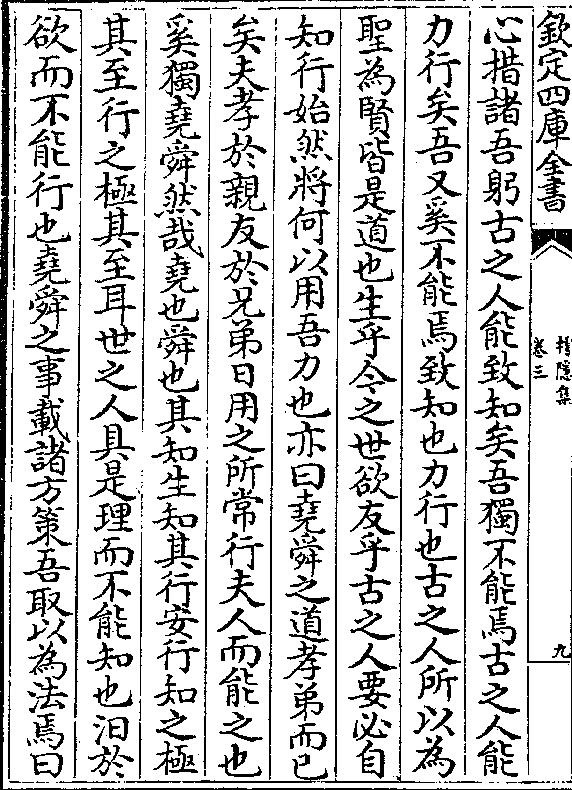 欽定四庫全書
樗隱集
卷三
九
心措諸吾躬古之人能致知矣吾獨不能焉古之人能
力行矣吾又奚不能焉致知也力行也古之人所以為
聖為賢皆是道也生乎今之世欲友乎古之人要必自
知行始然將何以用吾力也亦曰堯舜之道孝弟而已
矣夫孝於親友於兄弟日用之所常行夫人而能之也
奚獨堯舜然哉堯也舜也其知生知其行安行知之極
其至行之極其至耳世之人具是理而不能知也汩於
欲而不能行也堯舜之事載諸方策吾取以為法焉曰